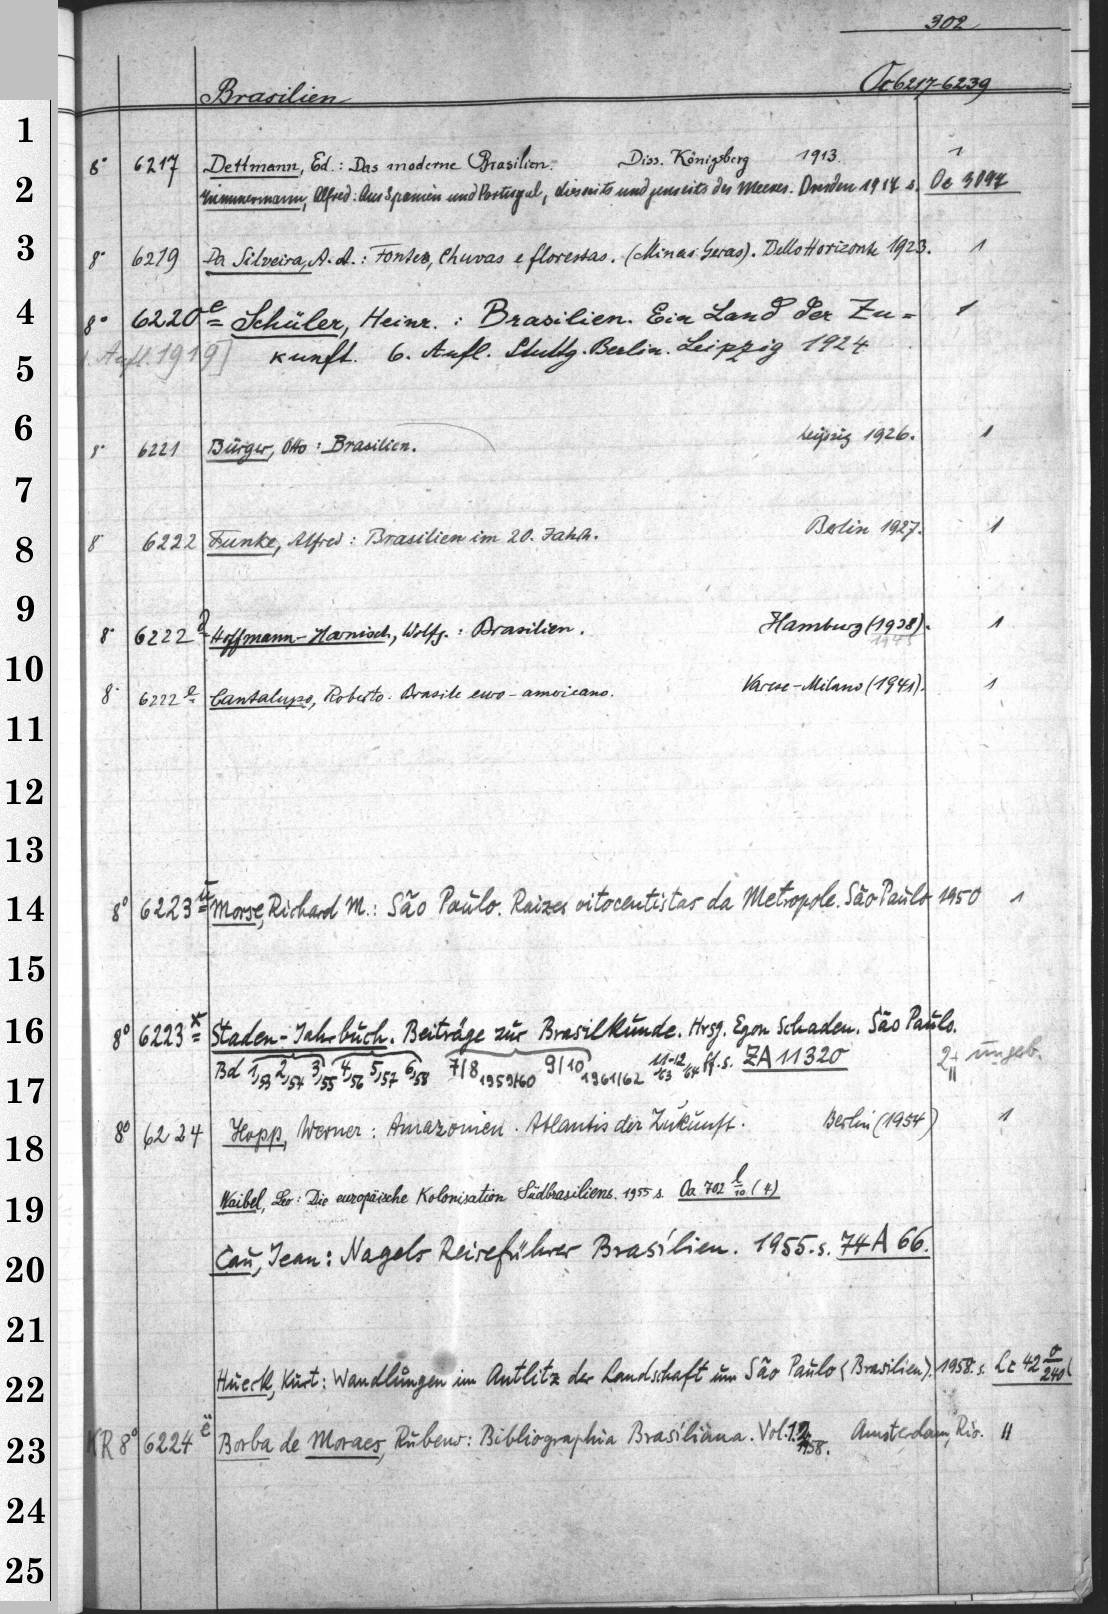 302
Brasilien Oc 6217-6239
1
8° 6217 Dettmann, Ed.: Das moderne Brasilien. Diss. Königsberg 1913. 1
2
Zimmermann, Alfred: Aus Spanien und Portugal, diesseits und jenseits des Meeres. Dresden 1914 s. Oc 3897
3
8° 6219 Da Silveira, A. A.: Fontes, Chuvas e florestas. (Minas Geras). Bello Horizonte 1923. 1
4
8° 6220 e Schüler, Heinr.: Brasilien. Ein Land der Zu= 1
5
Aufl. 1919] kunft. 6. Aufl. Stuttg. Berlin. Leipzig 1924
6
8° 6221 Bürger, Otto: Brasilien. Leipzig 1926. 1
7
8
8° 6222 Funke, Alfred: Brasilien im 20. Jahrh. Berlin 1927. 1
9
10
8° 6222 Hoffmann-Harnisch, Wolfg.: Brasilien. Hamburg (1938). 1
8° 6222 e Cantalupo, Roberto. Brasile euro-americano. Varese-Milano (1941). 1
11
12
13
14
8° 6223 u Morse, Richard M.: São Paulo. Raizes oitocentistas da Metropole. São Paulo 1950 1
15
16
8° 6223 x Staden-Jahrbuch. Beiträge zur Brasilkunde. Hrsg. Egon Schaden. São Paulo.
17
Bd 1,53 2,54 3,55 4,56 5,57 6,58 7/8 1959/60 9/10 1961/62 11-12, 63/64 ff. s. ZA 11320 2 ungeb.
18
8° 6224 Hopp, Werner: Amazonien. Atlantis der Zukunft. Berlin (1954) 1
19
Waibel, Leo: Die europäische Kolonisation Südbrasiliens. 1955 s. Oa 702 l/10 (4)
20
Cau, Jean: Nagels Reiseführer Brasilien. 1955. s. 74 A 66.
21
22
Hueck, Kurt: Wandlungen im Antlitz der Landschaft um São Paulo (Brasilien). 1958. s. Lc 42 o/240
23
KR 8° 6224 ë Borba de Moraes, Rubens: Bibliographia Brasiliana. Vol. 1.2 1958. Amsterdam, Rio. II
24
25